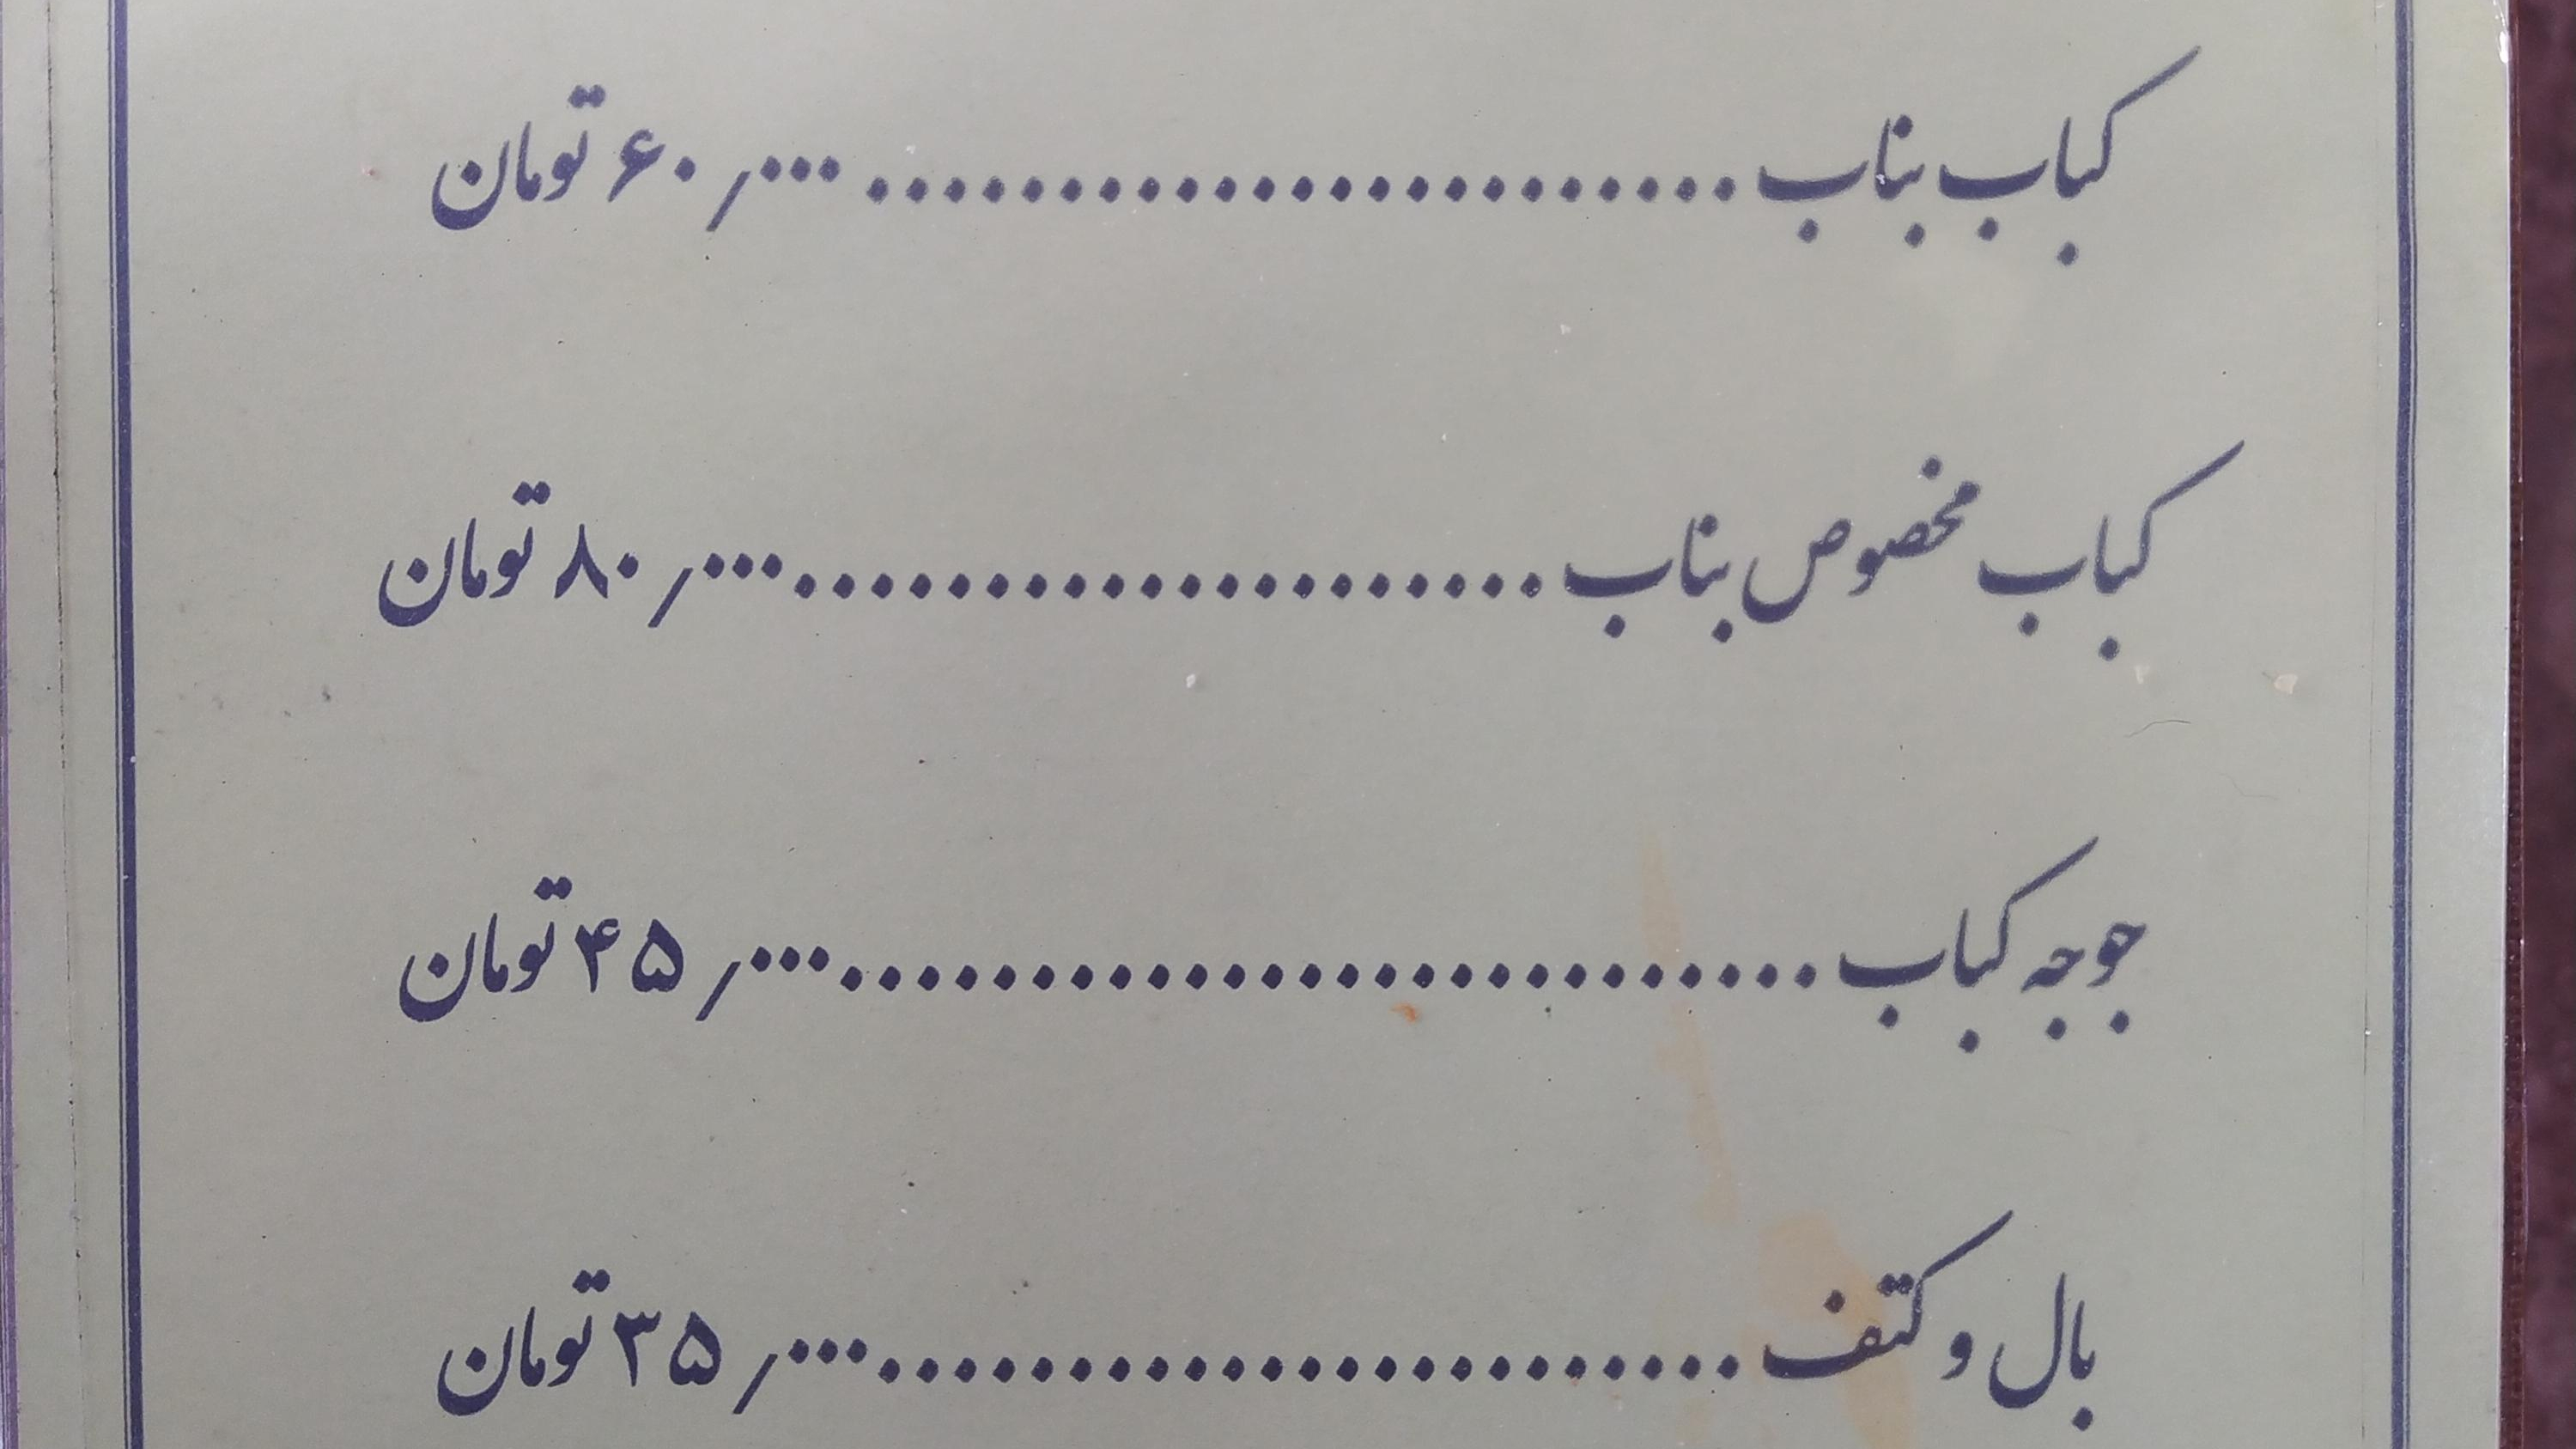 کباب بناب ....................... ۶۰٫۰۰۰ تومان
کباب مخصوص بناب .................... ۸۰٫۰۰۰ تومان
جوجه کباب .......................... ۴۵٫۰۰۰ تومان
بال و کتف ....................... ۳۵٫۰۰۰ تومان